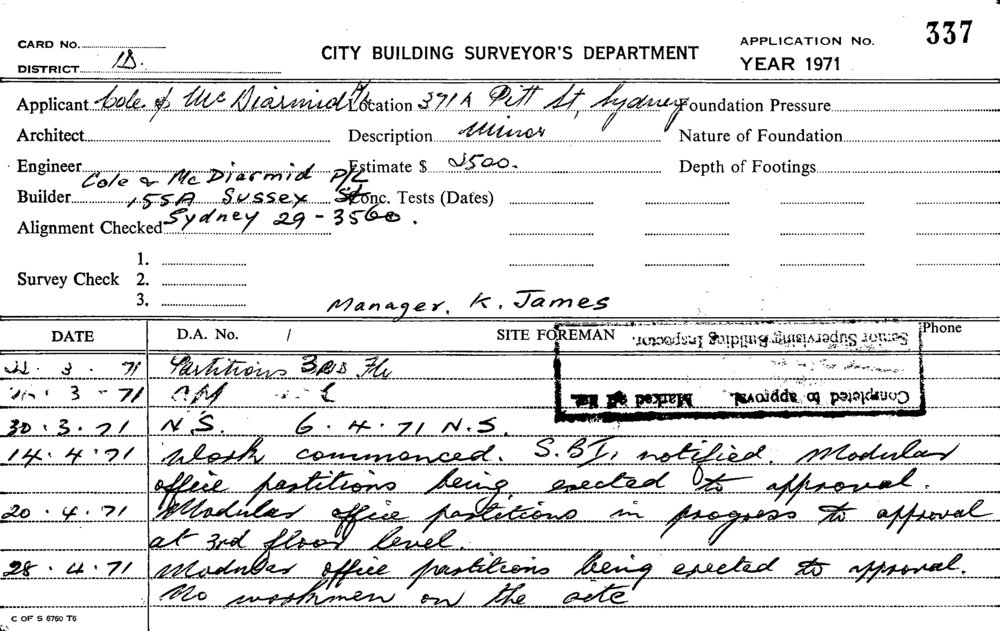 CARD No.
CITY BUILDING SURVEYOR'S DEPARTMENT
APPLICATION No. 337
DISTRICT
YEAR 1971
Applicant Cole & McDiarmid P/L Location 371A Pitt St, Sydney Foundation Pressure
Architect Description Minor Nature of Foundation
Engineer Estimate $ 3500. Depth of Footings
Cole & McDiarmid P/L
Builder 155A Sussex St Conc. Tests (Dates)
Alignment Checked Sydney 29-3560.
1.
Survey Check 2.
3.
Manager. K. James
DATE D.A. No. / SITE FOREMAN Phone
Senior Supervising Building Inspector.
Completed to approval. Marked off list.
3. 71 Partitions 3RD Flr
3-71
30.3.71 N.S. 6.4.71 N.S.
14.4.71 Work commenced. S.B.I. notified. Modular
office partitions being erected to approval.
20.4.71 Modular office partitions in progress to approval
at 3rd floor level.
28.4.71 Modular office partitions being erected to approval.
No workmen on the site
C OF S 6760 T6